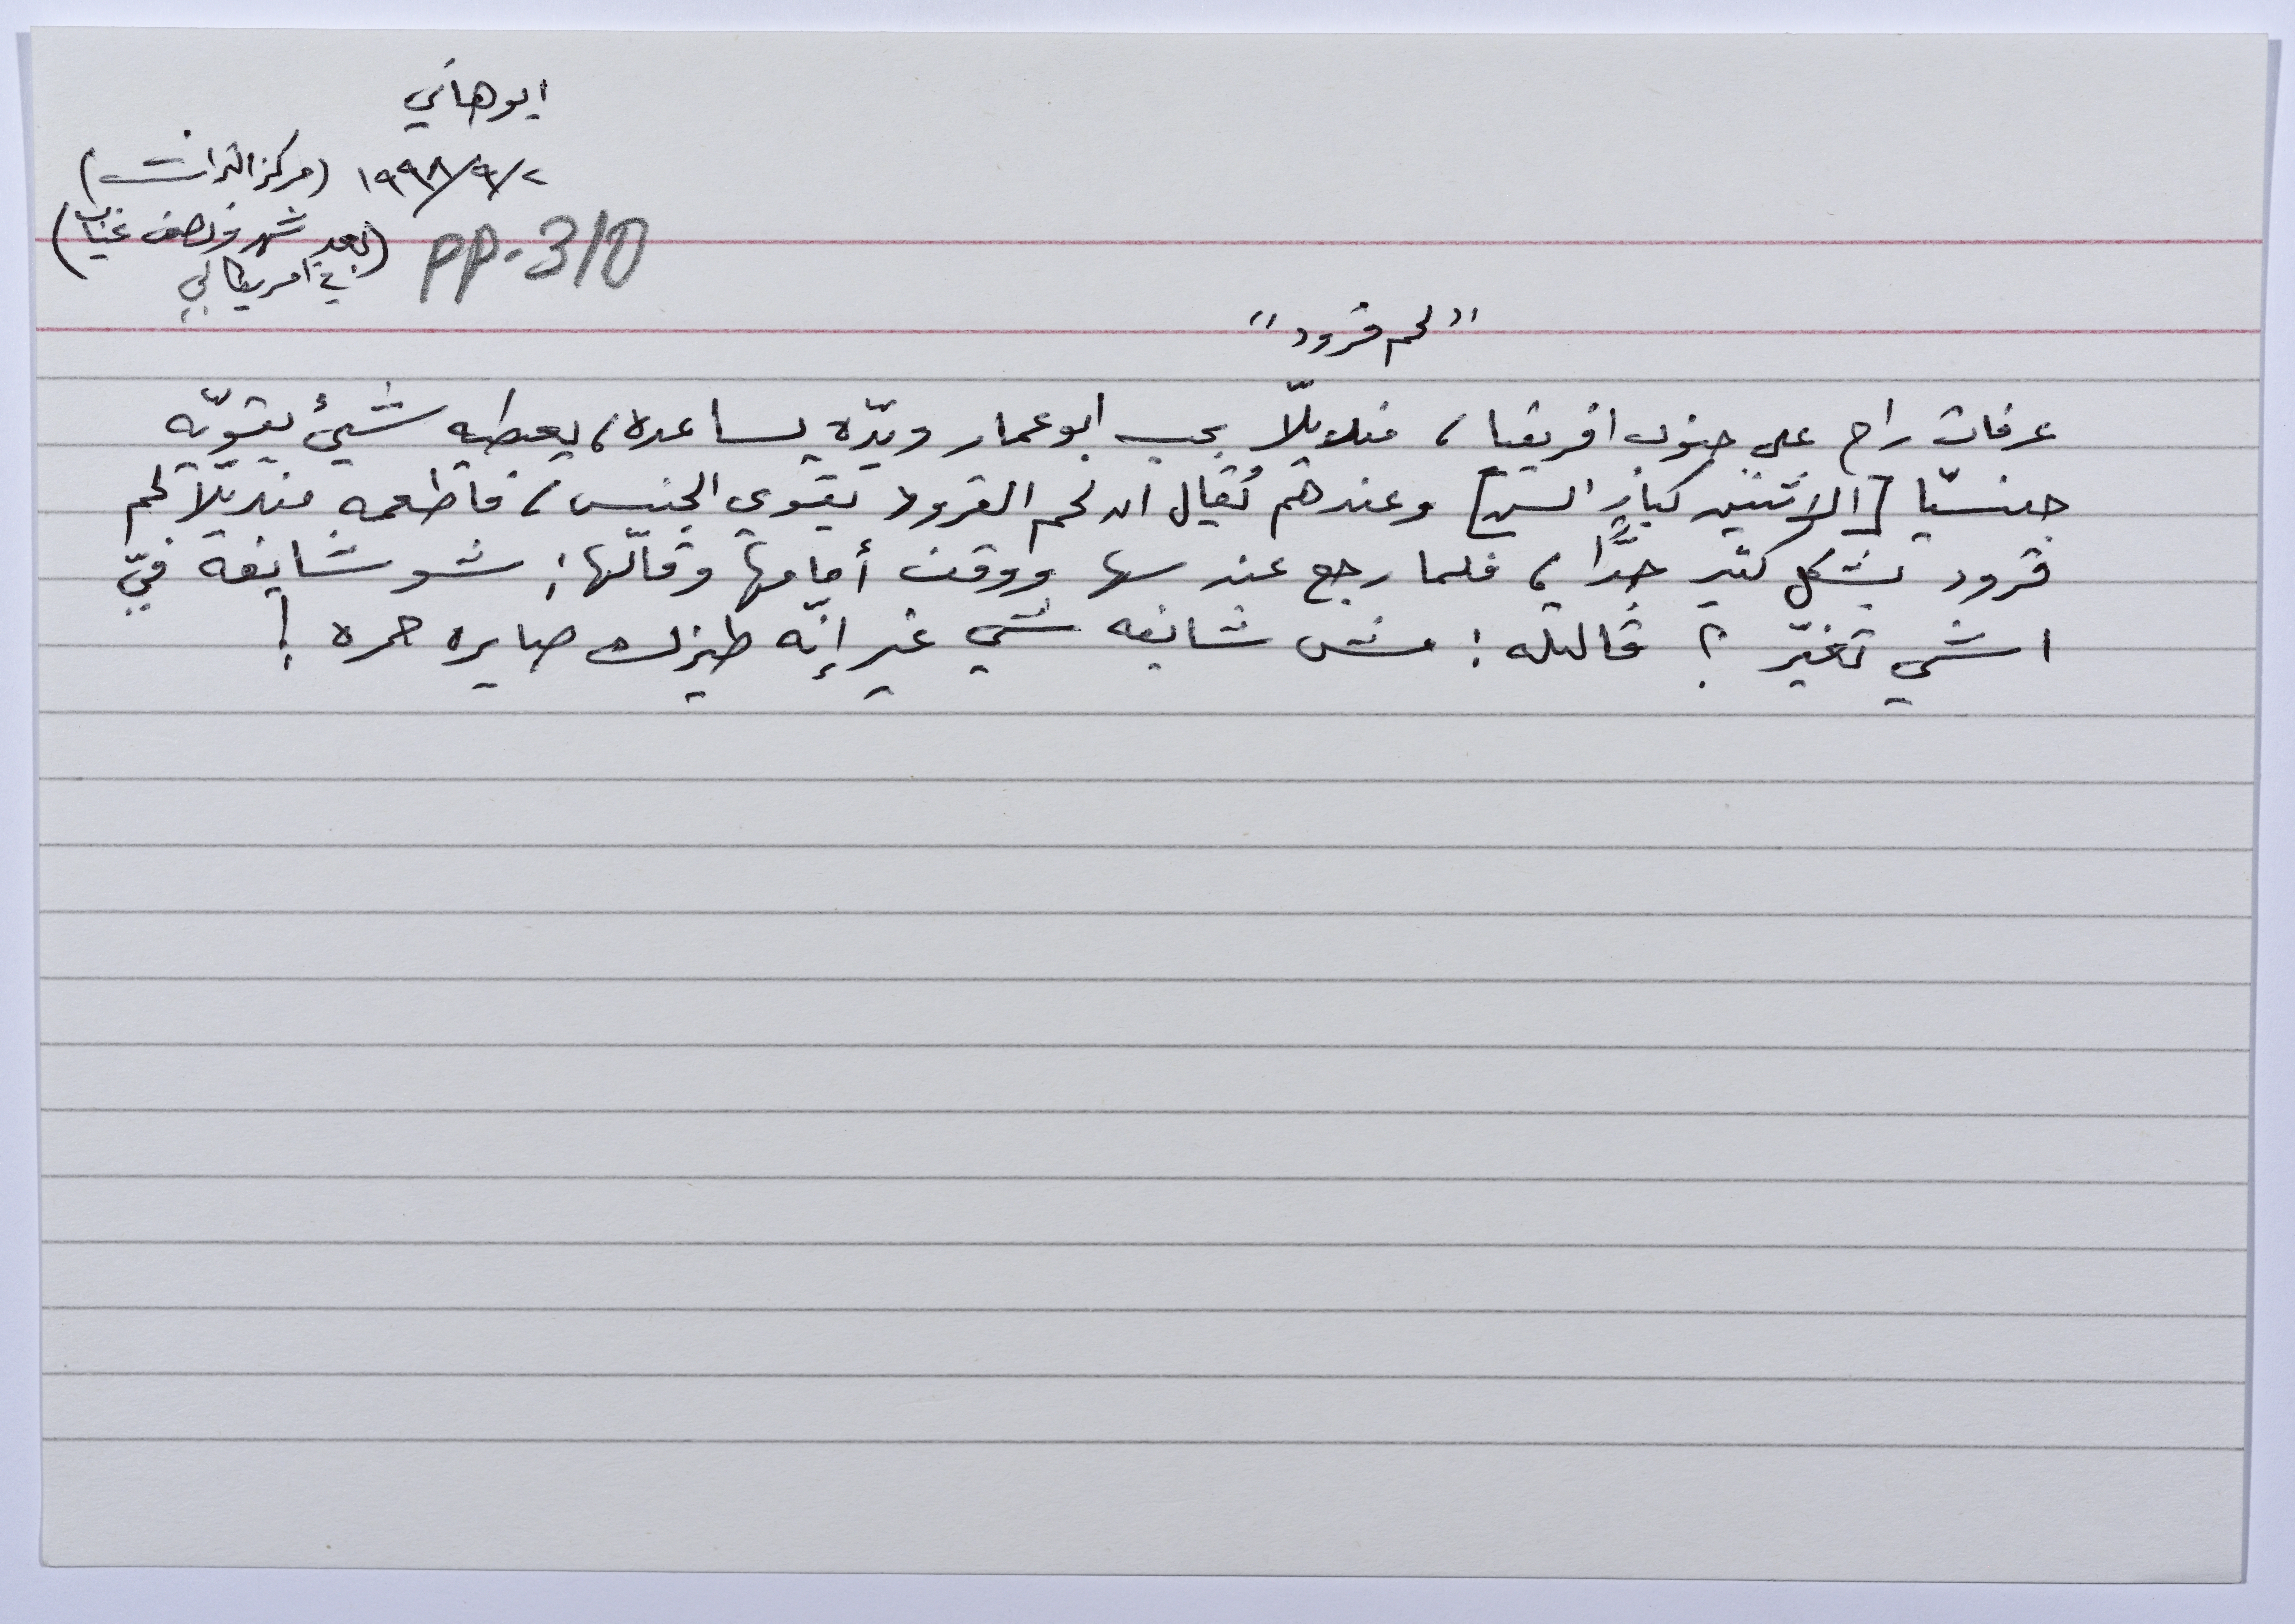 ابو هاني
١٩٩٨/٩/٢ (مركز التراث)
(بعد شهر ونصف غياب
في امريكا لي)
pp. 310
"لحم قرود"
عرفات راح على جنوب افريقيا، منديلّا بحب ابو عمار وبدّه يساعده، يعطيه شيئ يقويّه
جنسيّا [الاثنين كبار السن] وعندهم يُقال ان لحم القرود يقوي الجنس، فأطعمه منديلّا لحم
قرود بشكل كثير جدًّا، فلما رجع عند سها ووقف أمامها وقالّها: شو شايفة فيّ
اشي تغيّر؟ قالتله: مش شايفه شي غير إنّه طيزك صايره حمره!